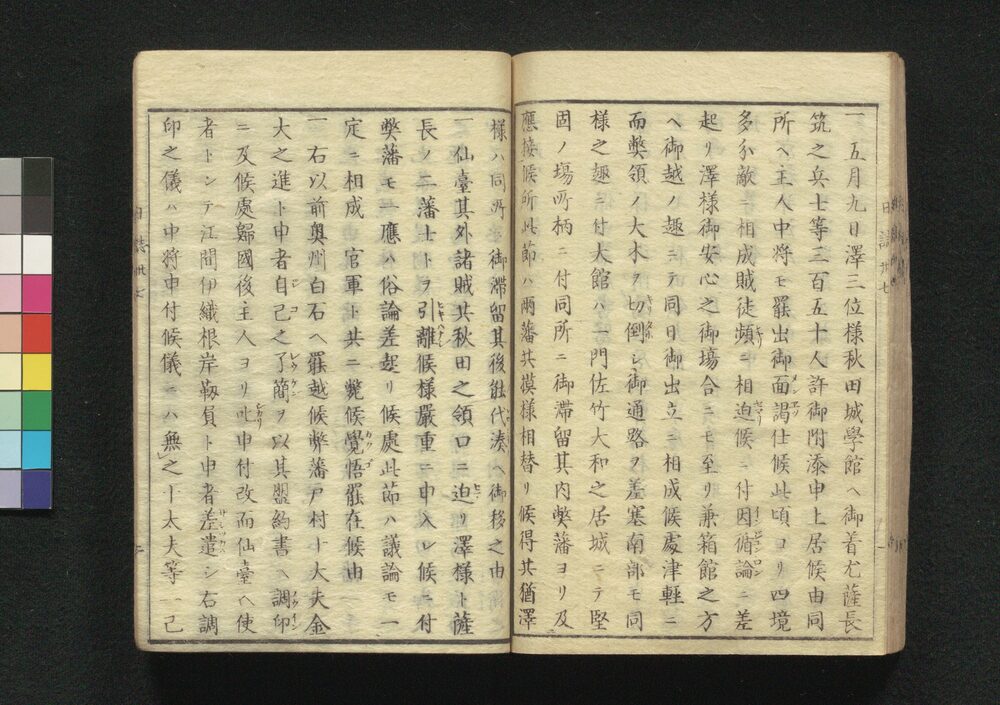 一五月九日澤三位樣秋田城學館ヘ御着尤薩長
筑之兵士等三百五十人許御附添申上居候由同
所ヘ主人中將モ罷出御面謁仕候此頃ヨリ四境
多分敵ニ相成賊徒頻ニ相迫候ニ付因循論ニ差
起リ澤樣御安心之御場合ニモ至リ兼箱館之方
ヘ御越ノ趣ニテ同日御出立ニ相成候處津輕ニ
而弊領ノ大木ヲ切倒シ御通路ヲ差塞南部モ同
樣之趣ニ付大館ハ一門佐竹大和之居城ニテ堅
固ノ塲所柄ニ付同所ニ御滯留其内弊藩ヨリ及
應接候所此節ハ兩藩共摸樣相替リ候得共猶澤
樣ハ同所ニ御滯留其後能代湊ヘ御移之由
一仙臺其外諸賊共秋田之領口ニ迫リ澤樣ト薩
長ノ二藩士トヲ引離候樣嚴重ニ申入レ候ニ付
弊藩モ一應ハ俗論差起リ候處此節ハ議論モ一
定ニ相成官軍ト共ニ斃候覺悟罷在候由
一右以前奥州白石ヘ罷越候弊藩戸村十大夫金
大之進ト申者自己之了簡ヲ以其盟約書ヘ調印
ニ及候處歸國後主人ヨリ叱申付改而仙臺ヘ使
者トシテ江間伊織根岸靱負ト申者差遣シ右調
印之儀ハ中將申付候儀ニハ無之十太夫等一己
日誌卅七